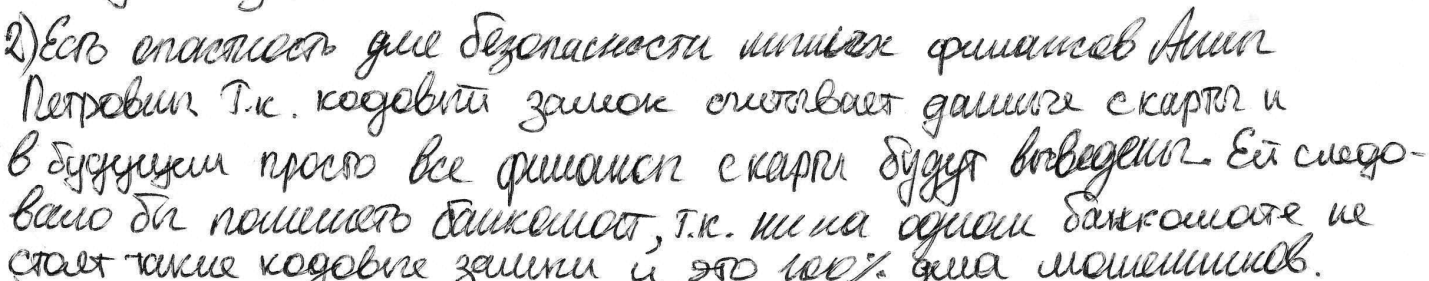 2) Есть опастность для безопасности личных финансов Анны
Петровны. Т.к. кодовый замок считывает данные с карты и
в будущем просто все финансы с карты будут выведены. Ей следо-
вало бы поменять банкомат, т.к. ни на одном банкомате не
стоят такие кодовые замки и это 100% дела мошенников.